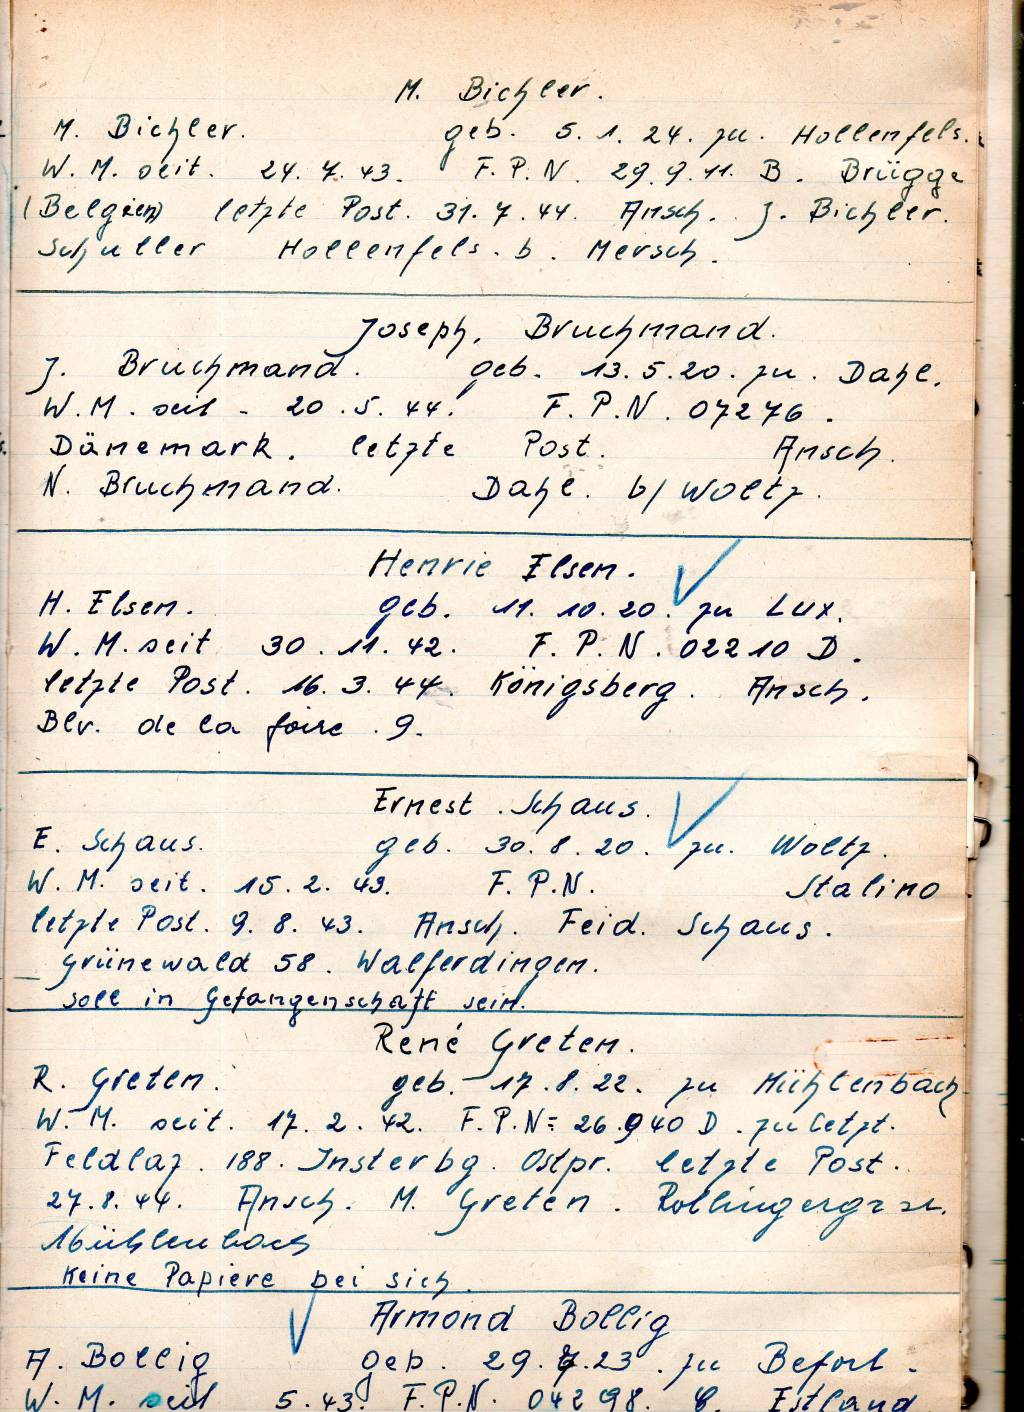 M. Bichler.
M. Bichler. geb. 5. 1. 24. zu. Hollenfels.
W. M. seit. 24. 7. 43. F. P. N. 29. 9. 11. B. Brügge
(Belgien) letzte Post. 31. 7. 44. Ansch. J. Bichler.
Schuller Hollenfels. b. Mersch.
Joseph, Bruchmand.
J. Bruchmand. geb. 13. 5. 20. zu. Dahl.
W. M. seit - 20. 5. 44. F. P. N. 07276.
Dänemark. letzte Post. Ansch.
N. Bruchmand. Dahl. b/ Woltz.
Henrie Elsen.
H. Elsen. geb. 11. 10. 20. zu Lux.
W. M. seit 30. 11. 42. F. P. N. 02210 D.
letzte Post. 16. 3. 44. Königsberg. Ansch.
Blv. de la foire. 9.
Ernest. Schaus.
E. Schaus. geb. 30. 8. 20. zu. Woltz.
W. M. seit. 15. 2. 43. F. P. N. Stalino
letzte Post. 9. 8. 43. Ansch. Feid. Schaus.
Grünewald 58. Walferdingen.
soll in Gefangenschaft sein.
René Greten.
R. Greten. geb. 17. 8. 22. zu Mühlenbach
W. M. seit. 17. 2. 42. F. P. N = 26.940 D. zuletzt.
Feldlaz. 188. Insterbg. Ostpr. letzte Post.
27. 8. 44. Ansch. M. Greten.
16 Mühlenbach
Keine Papiere bei sich.
Armond Bollig
A. Bollig geb. 29. 23. zu Befort.
W. M. seit 5. 43. F. P. N. 04298. Estland